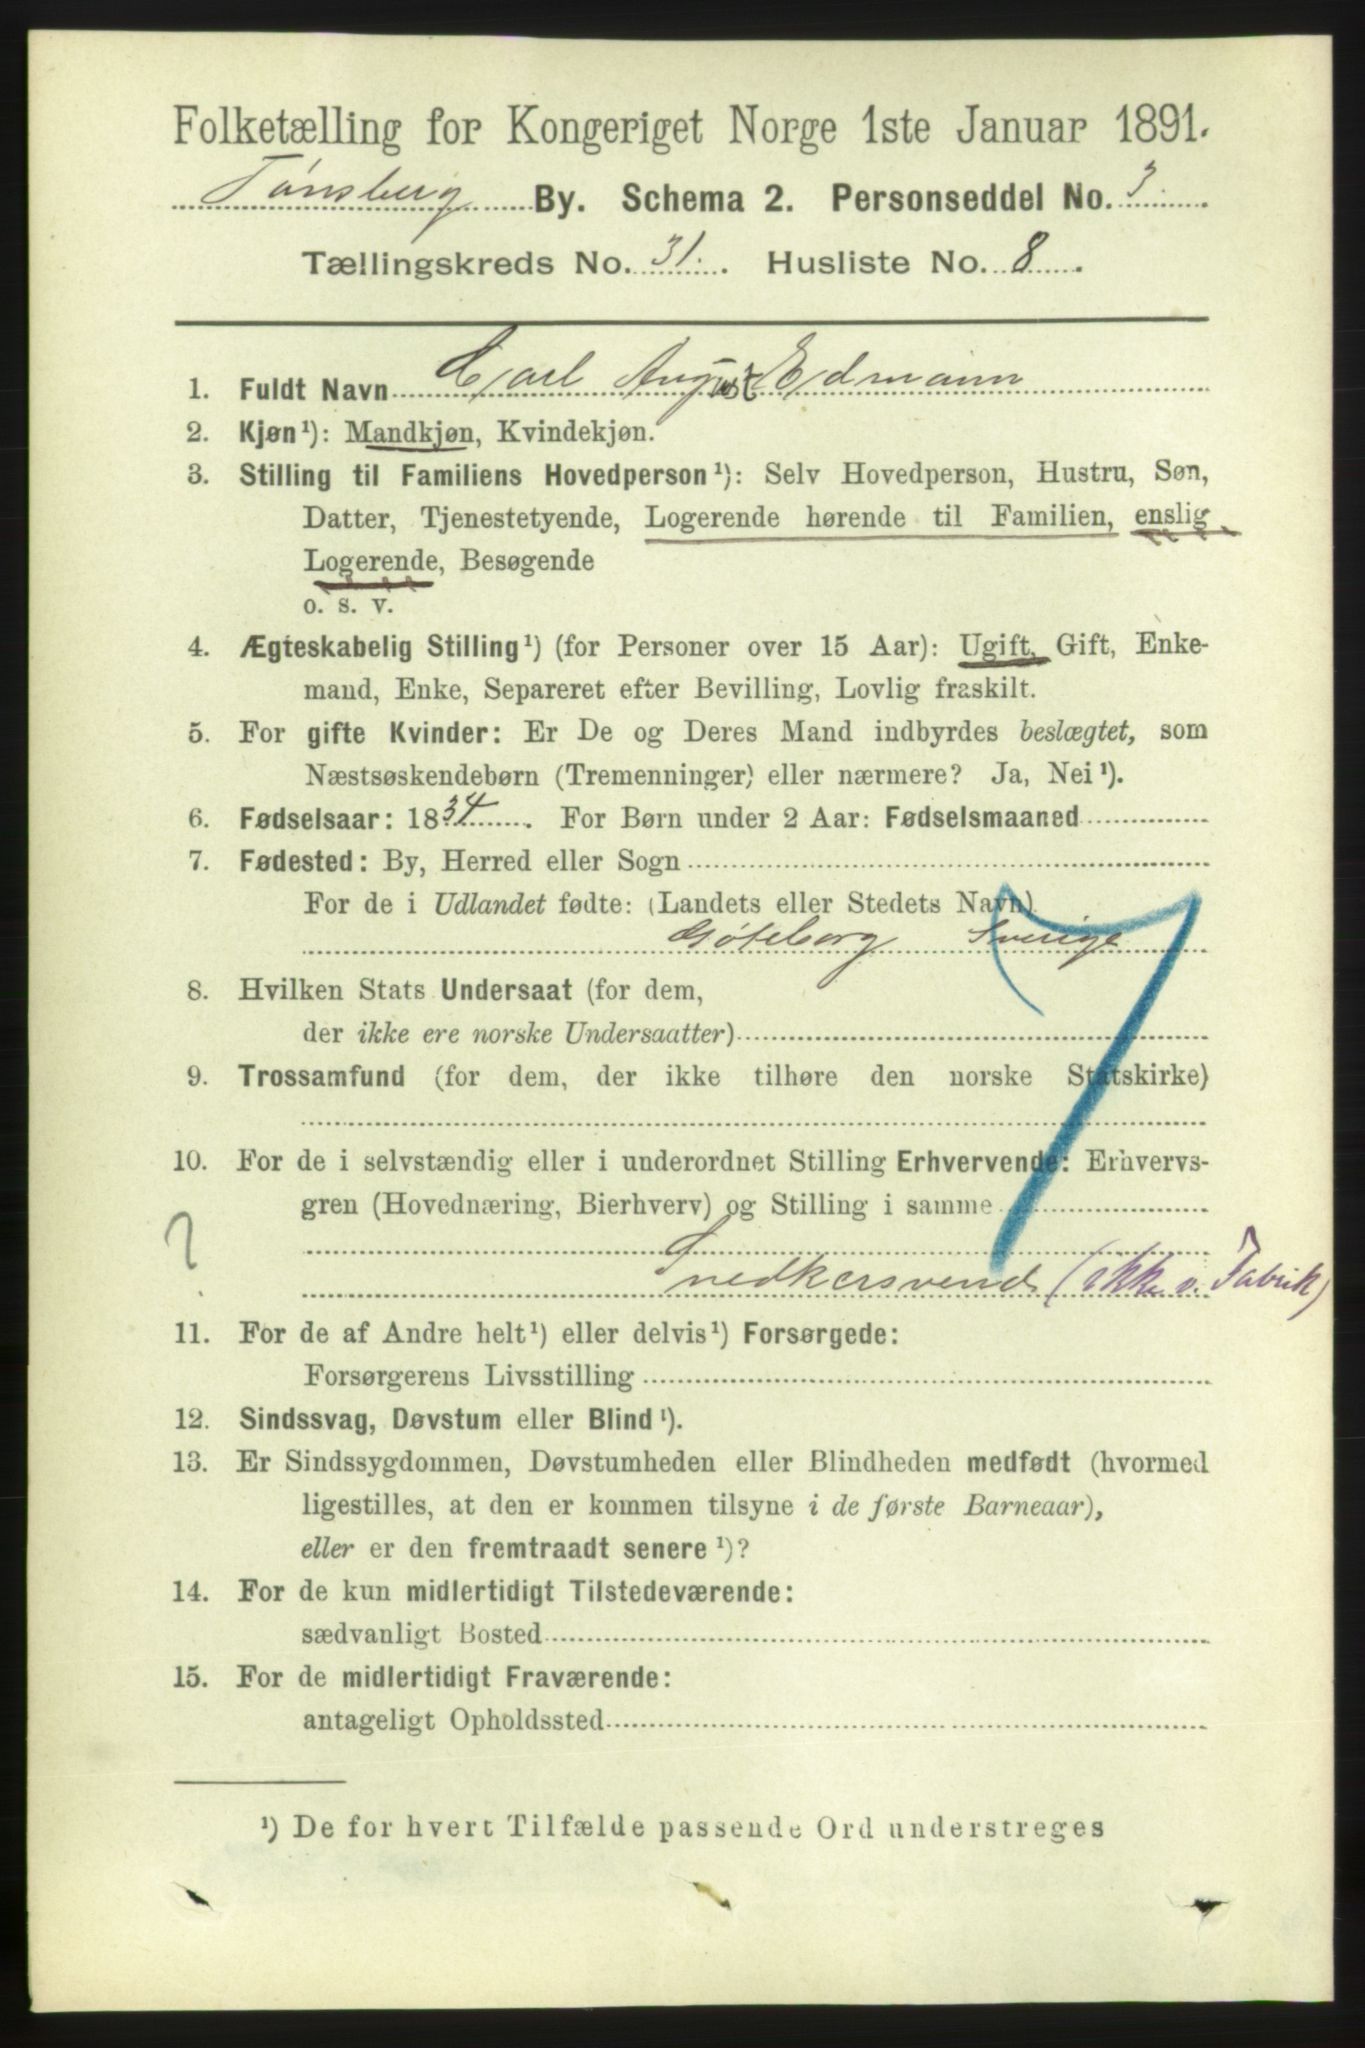 Folketælling for Kongeriget Norge 1ste Januar 1891.
Tønsberg By. Schema 2. Personseddel No. 3.
Tællingskreds No. 31. Husliste No. 8.
1. Fuldt Navn Carl August Edmann
2. Kjøn¹): Mandkjøn, Kvindekjøn.
3. Stilling til Familiens Hovedperson¹): Selv Hovedperson, Hustru, Søn,
Datter, Tjenestetyende, Logerende hørende til Familien, enslig
Logerende, Besøgende
o. s. v.
4. Ægteskabelig Stilling¹) (for Personer over 15 Aar): Ugift, Gift, Enke-
mand, Enke, Separeret efter Bevilling, Lovlig fraskilt.
5. For gifte Kvinder: Er De og Deres Mand indbyrdes beslægtet, som
Næstsøskendebørn (Tremenninger) eller nærmere? Ja, Nei¹).
6. Fødselsaar: 1834. For Børn under 2 Aar: Fødselsmaaned
7. Fødested: By, Herred eller Sogn
For de i Udlandet fødte: (Landets eller Stedets Navn)
Gøteborg Sverige
7
8. Hvilken Stats Undersaat (for dem,
der ikke ere norske Undersaatter)
9. Trossamfund (for dem, der ikke tilhøre den norske Statskirke)
10. For de i selvstændig eller i underordnet Stilling Erhvervende: Erhvervs-
gren (Hovednæring, Bierhverv) og Stilling i samme
? Snedkersvend (ikke v. Fabrik)
11. For de af Andre helt¹) eller delvis¹) Forsørgede:
Forsørgerens Livsstilling
12. Sindssvag, Døvstum eller Blind¹).
13. Er Sindssygdommen, Døvstumheden eller Blindheden medfødt (hvormed
ligestilles, at den er kommen tilsyne i de første Barneaar),
eller er den fremtraadt senere¹)?
14. For de kun midlertidigt Tilstedeværende:
sædvanligt Bosted
15. For de midlertidigt Fraværende:
antageligt Opholdssted
¹) De for hvert Tilfælde passende Ord understreges